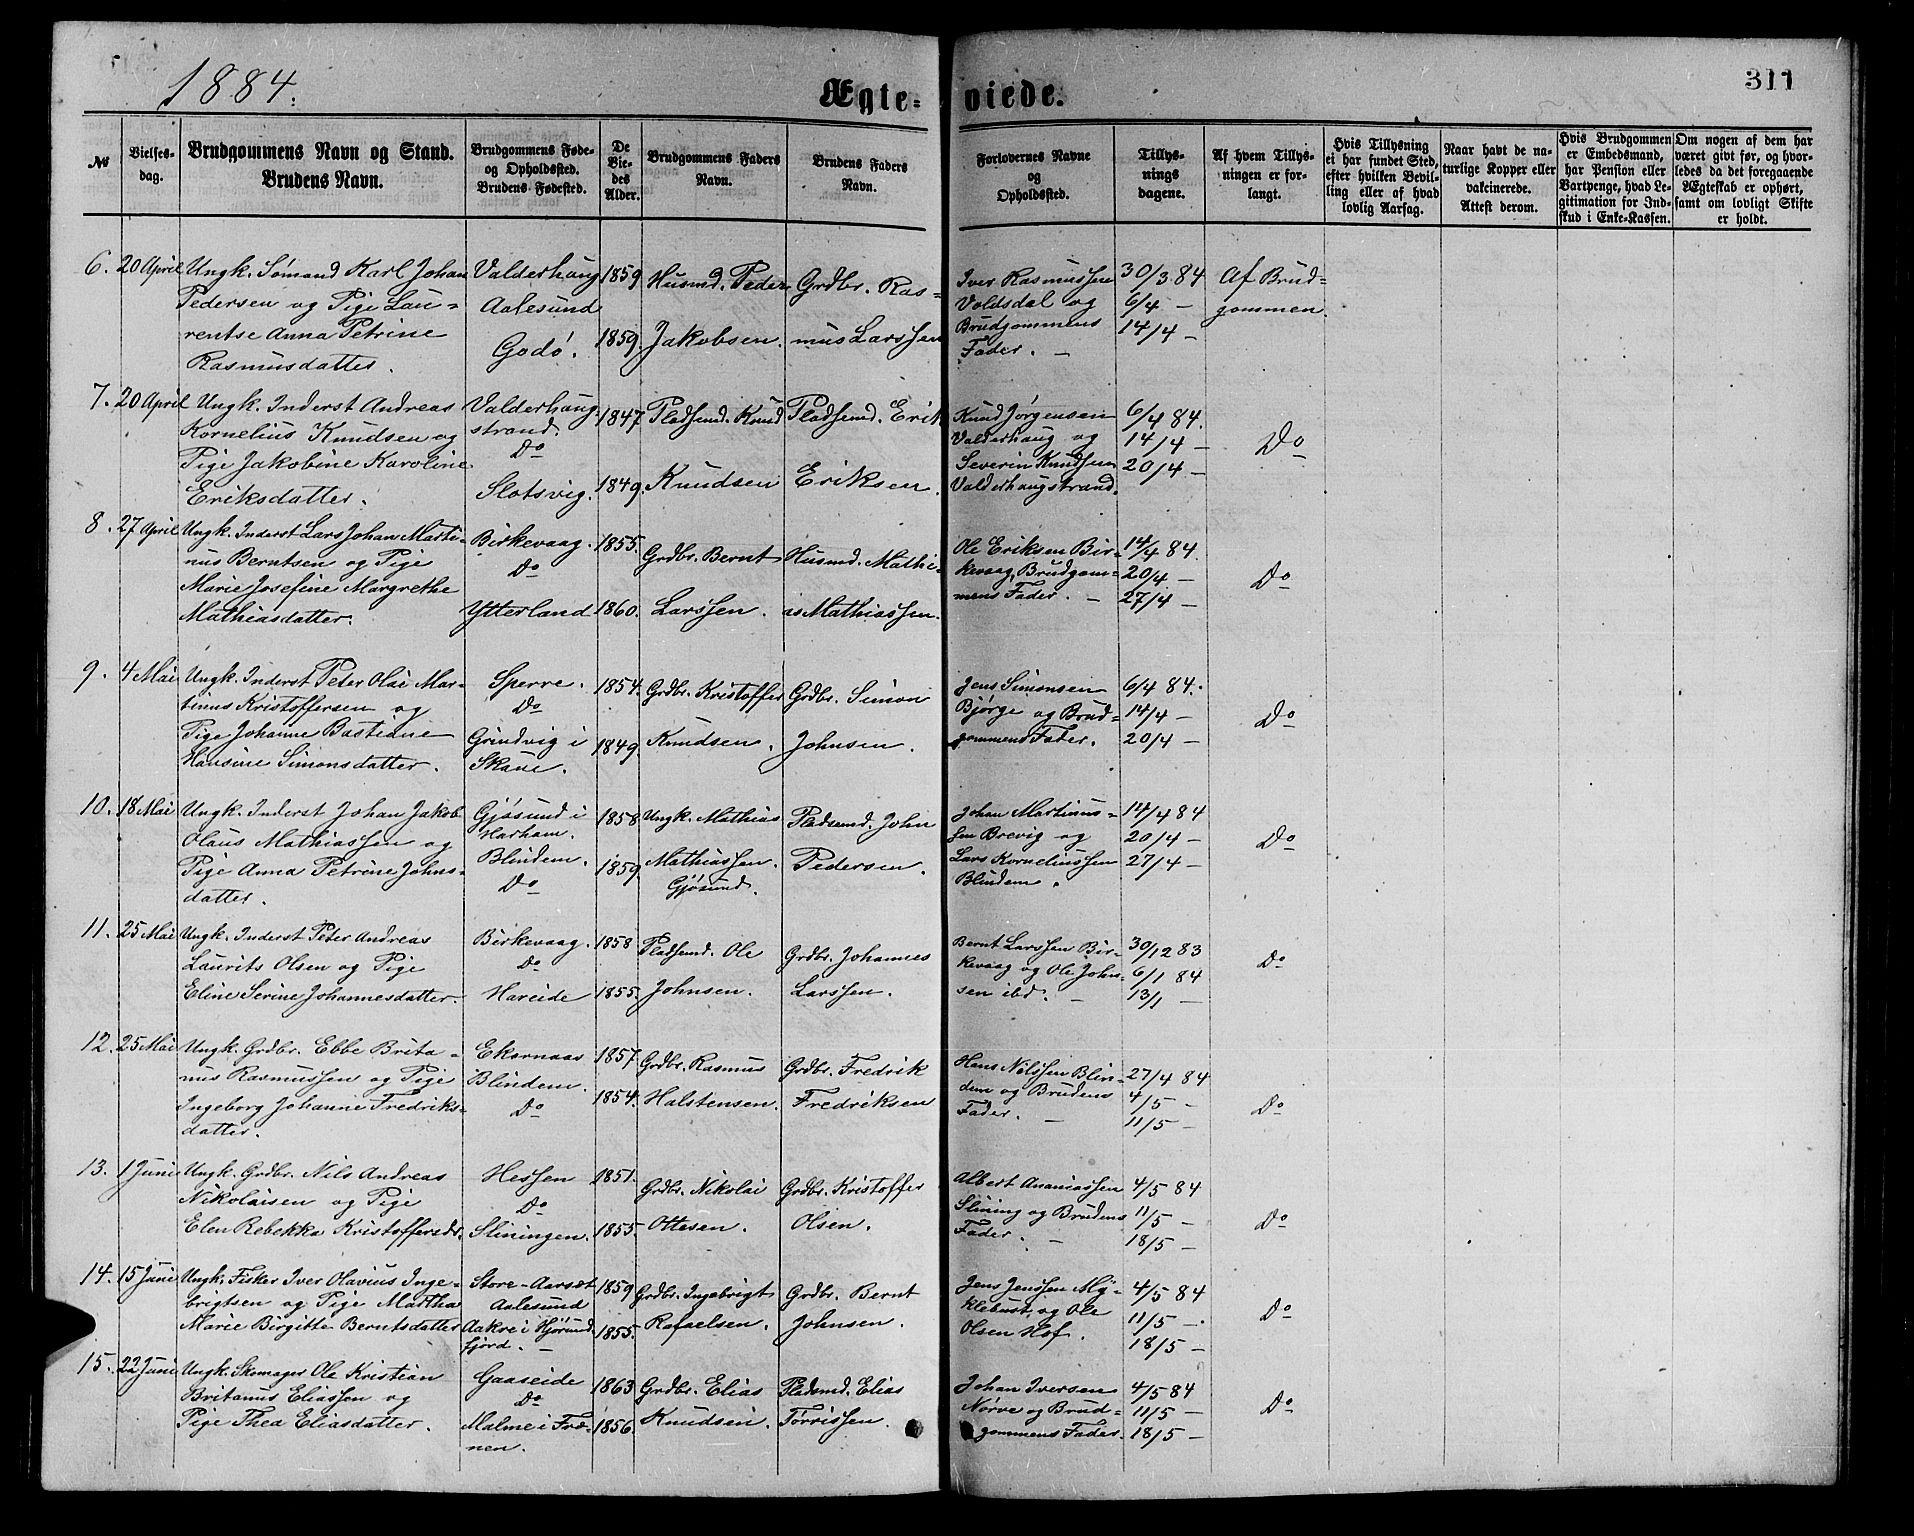 1884.
Ægte-
viede.
311
№
Vielses-
dag.
Brudgommens Navn og Stand.
Brudens Navn.
Brudgommens Føde-
og Opholdssted.
Brudens Fødested.
De
Vie-
des
Alder.
Brudgommens Faders
Navn.
Brudens Faders
Navn.
Forlovernes Navne
og
Opholdssted.
Tillys-
nings
dagene.
Af hvem Tillys-
ningen er for-
langt.
Hvis Tillysning
ei har fundet Sted,
efter hvilken Bevil-
ling eller af hvad
lovlig Aarsag.
Naar havt de na-
turlige Kopper eller
vakcinerede.
Attest derom.
Hvis Brudgommen
er Embedsmand,
har Pension eller
Vartpenge, hvad Le-
gitimation for Ind-
skud i Enke-Kassen.
Om nogen af dem har
været givt før, og hvor-
ledes da det foregaaende
Ægteskab er ophørt,
samt om lovligt Skifte
er holdt.
6.
20 April
Ungk. Sømand Karl Johan
Pedersen og Pige Lau-
rentse Anna Petrine
Rasmusdatter.
Valderhaug
Aalesund
Godø.
1859
1859.
Husmd. Peder
Jakobsen.
Grdbr. Ras-
mus Larssen
Iver Rasmussen
Voldsdal og
Brudgommens
Fader. —
30/3 84
6/4 —
14/4 —
Af Brud-
gommen.
7.
20 April
Ungk. Inderst Andreas
Kornelius Knudsen og
Pige Jakobine Karoline
Eriksdatter.
Valderhaug-
strand.
Do
Slotsvig.
1847
1849.
Pladsemd. Knud
Knudsen
Pladsemd. Erik
Eriksen.
Knud Jørgensen
Valderhaug og
Severin Knudsen
Valderhaugstrand.
6/4 84.
14/4 —
20/4 —
Do
8.
27 April
Ungk. Inderst Lars Johan Marti-
nus Berntsen og Pige
Marie Josefine Margrethe
Mathiasdatter.
Birkevaag.
Do
Ytterland
1855.
1860.
Grdbr. Bernt
Larssen.
Husmd. Mathi-
as Mathiassen.
Ole Eriksen Bir-
kevaag, Brudgom-
mens Fader. —
14/4 84.
20/4 —
27/4 —
Do
9.
4 Mai
Ungk. Inderst Peter Olai Mar-
tinus Kristoffersen og
Pige Johanne Bastiane
Hansine Simonsdatter.
Sperre.
Do
Grindvig i
Skaue.
1854.
1849.
Grdbr. Kristoffer
Knudsen.
Grdbr. Simon
Johnsen.
Jens Simonsen
Bjørge og Brud-
gommens Fader.
6/4 84.
14/4 —
20/4 —
Do
10.
18 Mai
Ungk. Inderst Johan Jakob
Olaus Mathiassen og
Pige Anna Petrine Johns-
datter.
Gjøsund i
Harham.
Blindem.
Do
1858
1859.
Ungk. Mathias
Mathiassen.
Gjøsund.
Pladsemd. John
Pedersen.
Johan Martinus-
sen Brevig og
Lars Korneliussen
Blindem.
14/4 84
20/4 —
27/4 —
Do
11.
25 Mai
Ungk. Inderst Peter Andreas
Laurits Olsen og Pige
Eline Serine Johannesdatter.
Birkevaag.
Do
Hareide
1858
1855.
Pladsemd. Ole
Johnsen.
Grdbr. Johannes
Larssen.
Bernt Larssen Bir-
kevaag og Ole John-
sen ibd. —
30/12 83
6/1 84
13/1 —
Do
12.
25 Mai
Ungk. Grdbr. Ebbe Brita-
nus Rasmussen og Pige
Ingeborg Johanne Fredriks-
datter.
Ekornaas
Blindem.
Do
1857.
1854.
Grdbr. Rasmus
Halstensen.
Grdbr. Fredrik
Fredriksen
Hans Nilssen Blin-
dem og Brudens
Fader. —
27/4 84
4/5 —
11/5 —
Do
13.
1 Juni
Ungk. Grdbr. Nils Andreas
Nikolaisen og Pige
Elen Rebekka Kristoffersdr.
Hessen
Do
Sliningen.
1851.
1855.
Grdbr. Nikolai
Ottesen.
Grdbr. Kristoffer
Olsen.
Albert Ananiassen
Slining og Brudens
Fader. —
4/5 84
11/5 —
18/5 —
Do
14.
15 Juni
Ungk. Fisker Iver Olavius Inge-
brigtsen og Pige Martha
Marie Birgitte Berntsdatter
Store-Aarset
Aalesund
Aakre i Hjørund-
fjord. —
1859
1855.
Grdbr. Ingebrigt
Rafaelsen.
Grdbr. Bernt
Johnsen.
Jens Jenssen My-
klebust, og Ole
Olsen Hof.
4/5 84
11/5 —
18/5 —
Do
15.
22 Juni
Ungk. Skomager Ole Kristian
Britanus Eliassen og
Pige Thea Eliasdatter.
Gaaseide
Do
Malme i Fræ-
nen.
1863
1856.
Grdbr. Elias
Knudsen.
Pladsmd. Elias
Tørrissen.
Johan Iversen
Nørve og Brud-
gommens Fader.
4/5 84
11/5 —
18/5 —
Do